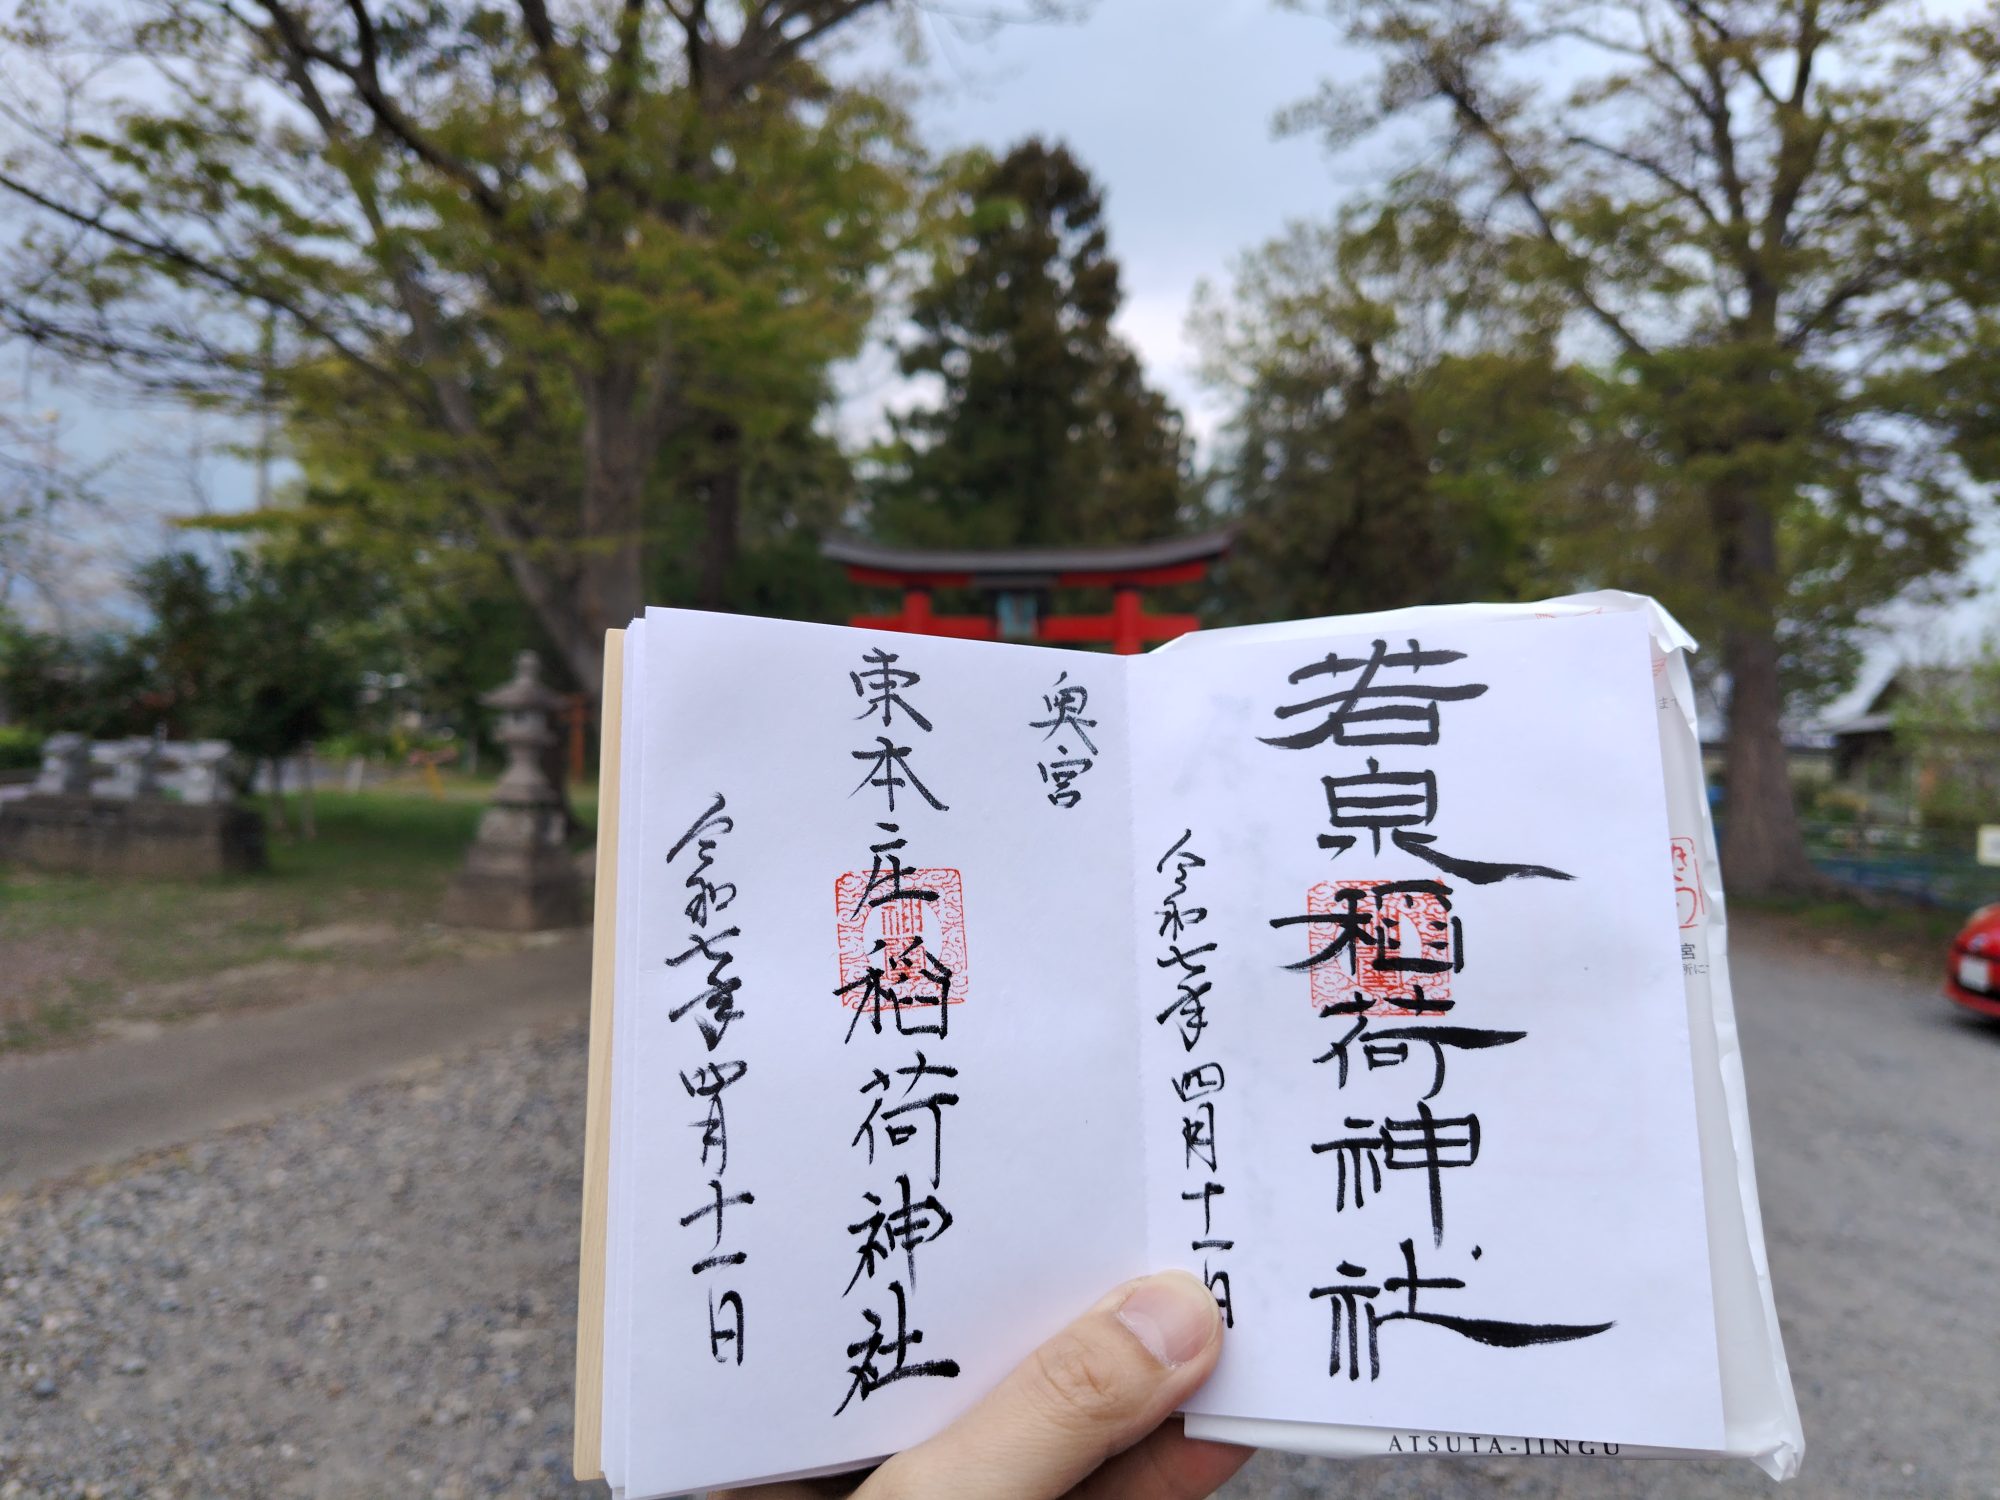 若泉稲荷神社
令和七年四月十一日
奥宮
東本庄稲荷神社
令和七年四月十一日
ATSUTA-JINGU